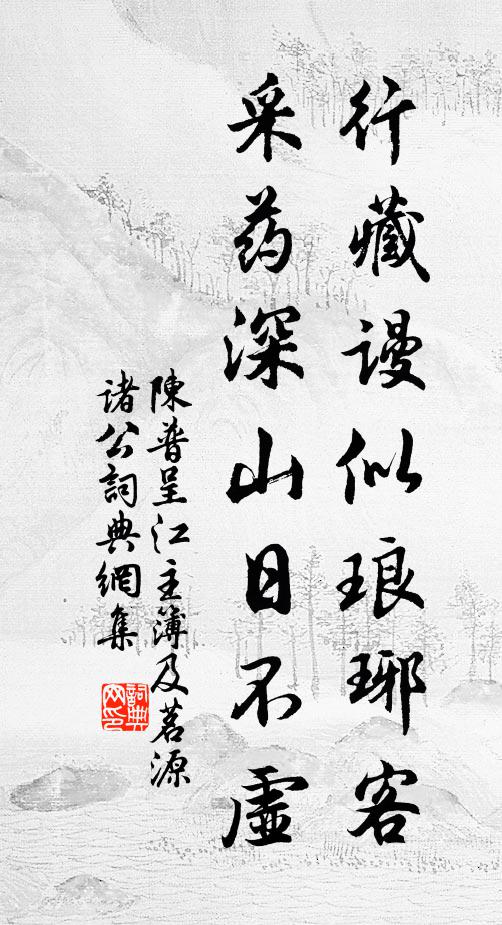 行藏谩似琅琊客
采药深山日不虚
陳普呈江主簿及茗源
諸公詞典網集
詞典
网印